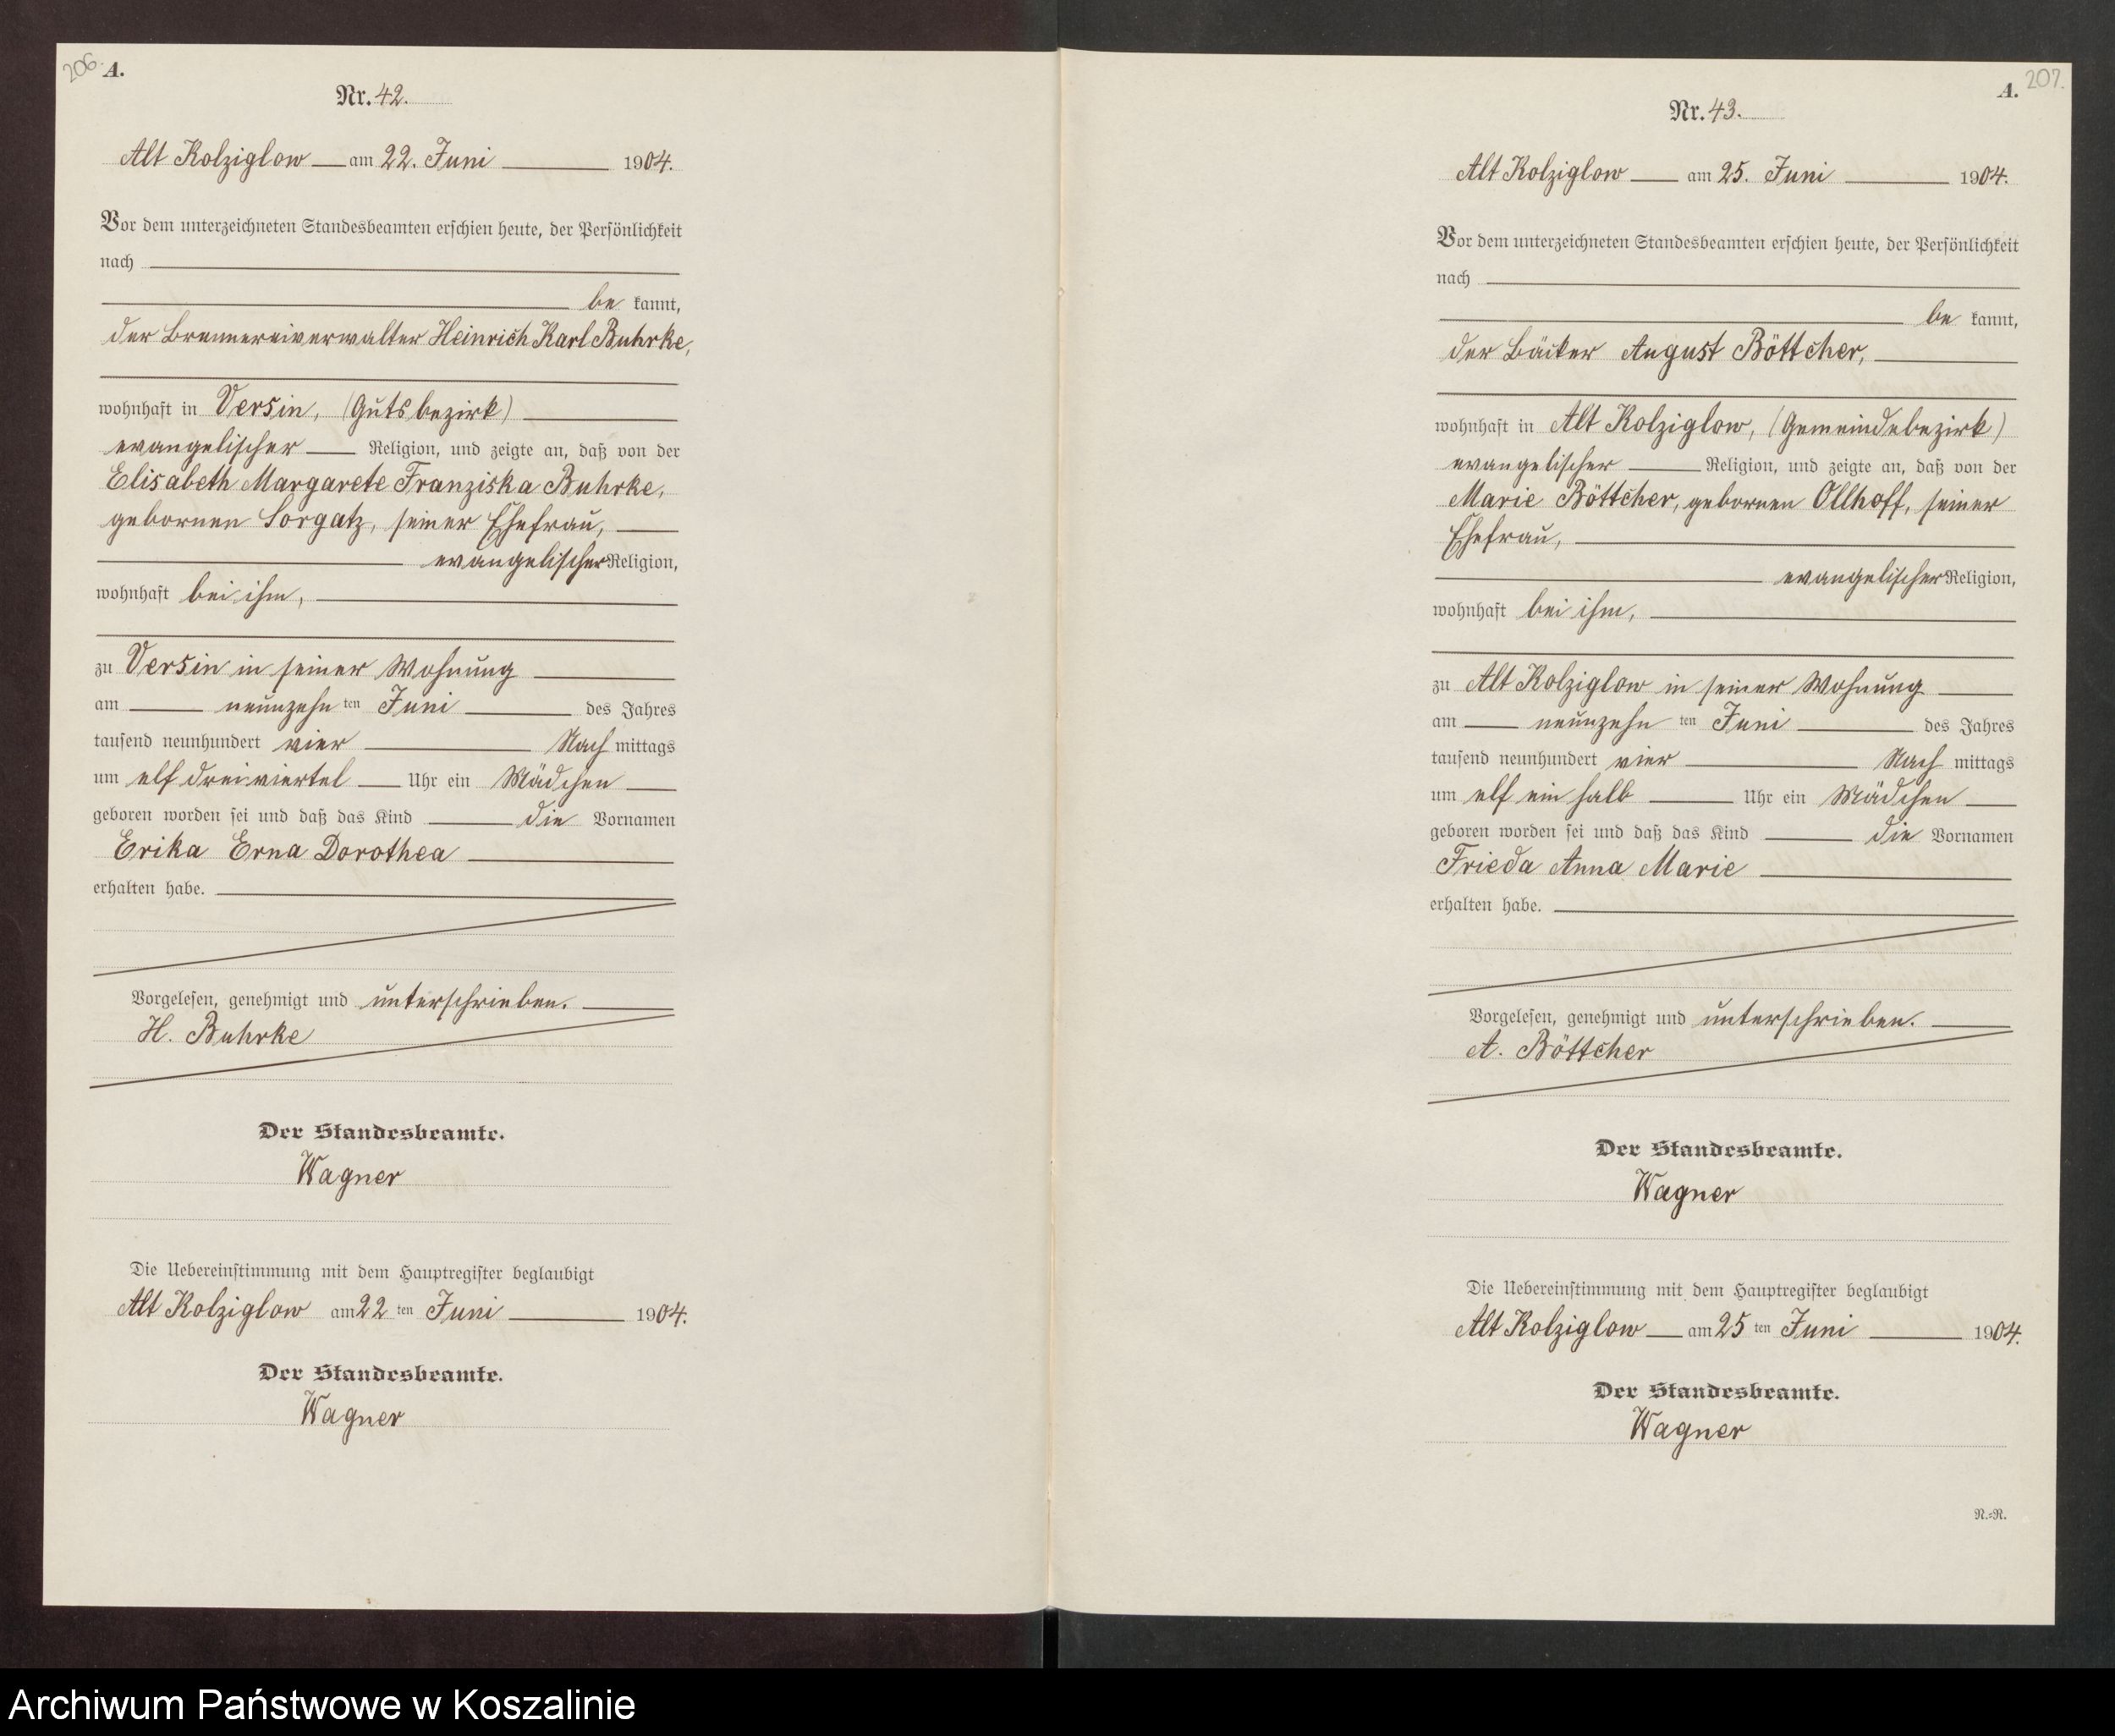 206.
A.
Nr. 42.
Alt Kolziglow am 22. Juni 1904.
Vor dem unterzeichneten Standesbeamten erschien heute, der Persönlichkeit
nach
be kannt,
der Brennereiverwalter Heinrich Karl Buhrke,
wohnhaft in Versin, (Gutsbezirk)
evangelischer Religion, und zeigte an, daß von der
Elisabeth Margarete Franziska Buhrke,
gebornen Sorgatz, seiner Ehefrau,
evangelischer Religion,
wohnhaft bei ihm,
zu Versin in seiner Wohnung
am neunzehn ten Juni des Jahres
tausend neunhundert vier Nach mittags
um elf dreiviertel Uhr ein Mädchen
geboren worden sei und daß das Kind die Vornamen
Erika Erna Dorothea
erhalten habe.
Vorgelesen, genehmigt und unterschrieben.
H. Buhrke
Der Standesbeamte.
Wagner
Die Uebereinstimmung mit dem Hauptregister beglaubigt
Alt Kolziglow am 22 ten Juni 1904.
Der Standesbeamte.
Wagner
207.
A.
Nr. 43.
Alt Kolziglow am 25. Juni 1904.
Vor dem unterzeichneten Standesbeamten erschien heute, der Persönlichkeit
nach
be kannt,
der Bäcker August Böttcher,
wohnhaft in Alt Kolziglow, (Gemeindebezirk)
evangelischer Religion, und zeigte an, daß von der
Marie Böttcher, gebornen Ollhoff, seiner
Ehefrau,
evangelischer Religion,
wohnhaft bei ihm,
zu Alt Kolziglow in seiner Wohnung
am neunzehn ten Juni des Jahres
tausend neunhundert vier Nach mittags
um elf ein halb Uhr ein Mädchen
geboren worden sei und daß das Kind die Vornamen
Frieda Anna Marie
erhalten habe.
Vorgelesen, genehmigt und unterschrieben.
A. Böttcher
Der Standesbeamte.
Wagner
Die Uebereinstimmung mit dem Hauptregister beglaubigt
Alt Kolziglow am 25 ten Juni 1904.
Der Standesbeamte.
Wagner
N.=N.
Archiwum Państwowe w Koszalinie